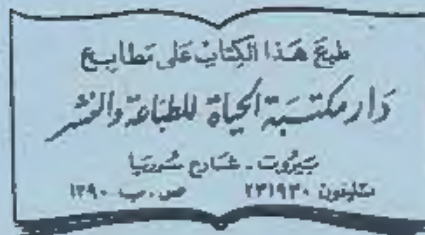 طبع هذا الكتاب على مطابع
دار مكتبة الحياة للطباعة والنشر
بيروت - شارع سوريا
تلفون ٢٣١٩٣٠ ص.ب ١٣٩٠